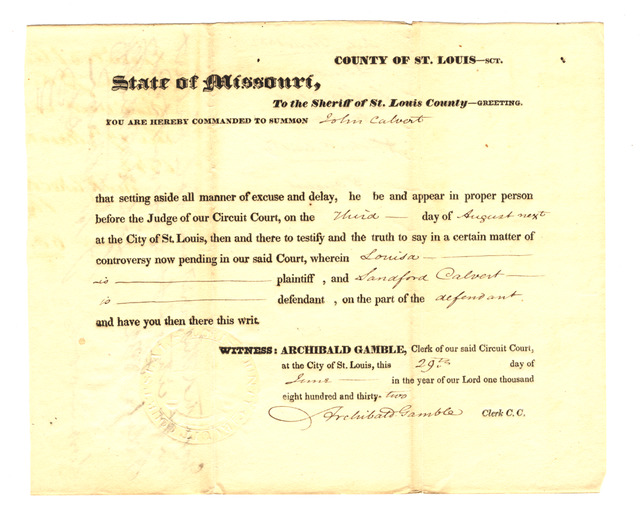 COUNTY OF ST. LOUIS—SCT.
State of Missouri,
To the Sheriff of St. Louis County—GREETING.
YOU ARE HEREBY COMMANDED TO SUMMON John Calvert
that setting aside all manner of excuse and delay, he be and appear in proper person
before the Judge of our Circuit Court, on the Third — day of August next
at the City of St. Louis, then and there to testify and the truth to say in a certain matter of
controversy now pending in our said Court, wherein Louisa —
is — plaintiff , and Landford Calvert —
is — defendant , on the part of the defendant.
and have you then there this writ.
WITNESS: ARCHIBALD GAMBLE, Clerk of our said Circuit Court,
at the City of St. Louis, this 29th day of
June — in the year of our Lord one thousand
eight hundred and thirty-two
Archibald Gamble Clerk C. C.